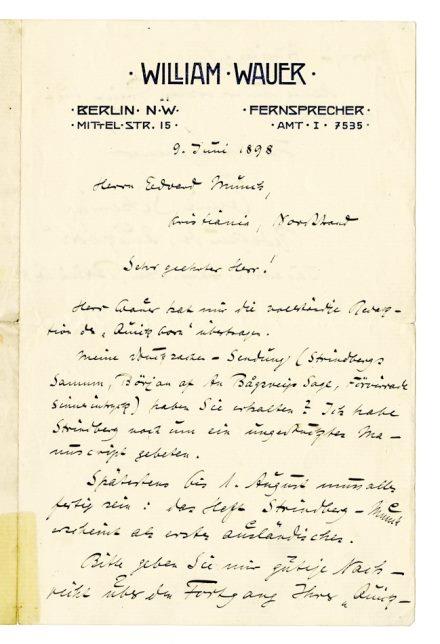 · WILLIAM · WAUER ·
· BERLIN · N · W · · FERNSPRECHER ·
· MITTEL · STR. 15 · · AMT · I · 7535 ·
9. Juni 1898
Herrn Edvard Munch,
Kristiania, Nordstrand
Sehr geehrter Herr!
Herr Wauer hat mir die vollständige Redak-
tion des „Quickborn" übertragen.
Meine Drucksachen - Sendung (Strindbergs
Samum, Början af An Bågsveigs Saga, Förvirrade
Sinnesintryck) haben Sie erhalten? Ich habe
Strindberg noch um ein ungedrucktes Ma-
nuscript gebeten.
Spätestens bis 1. August muss alles
fertig sein: das Heft Strindberg - Munch
erscheint als erstes ausländisches.
Bitte geben Sie mir gütige Nach-
richt über den Fortgang Ihrer „Quick-